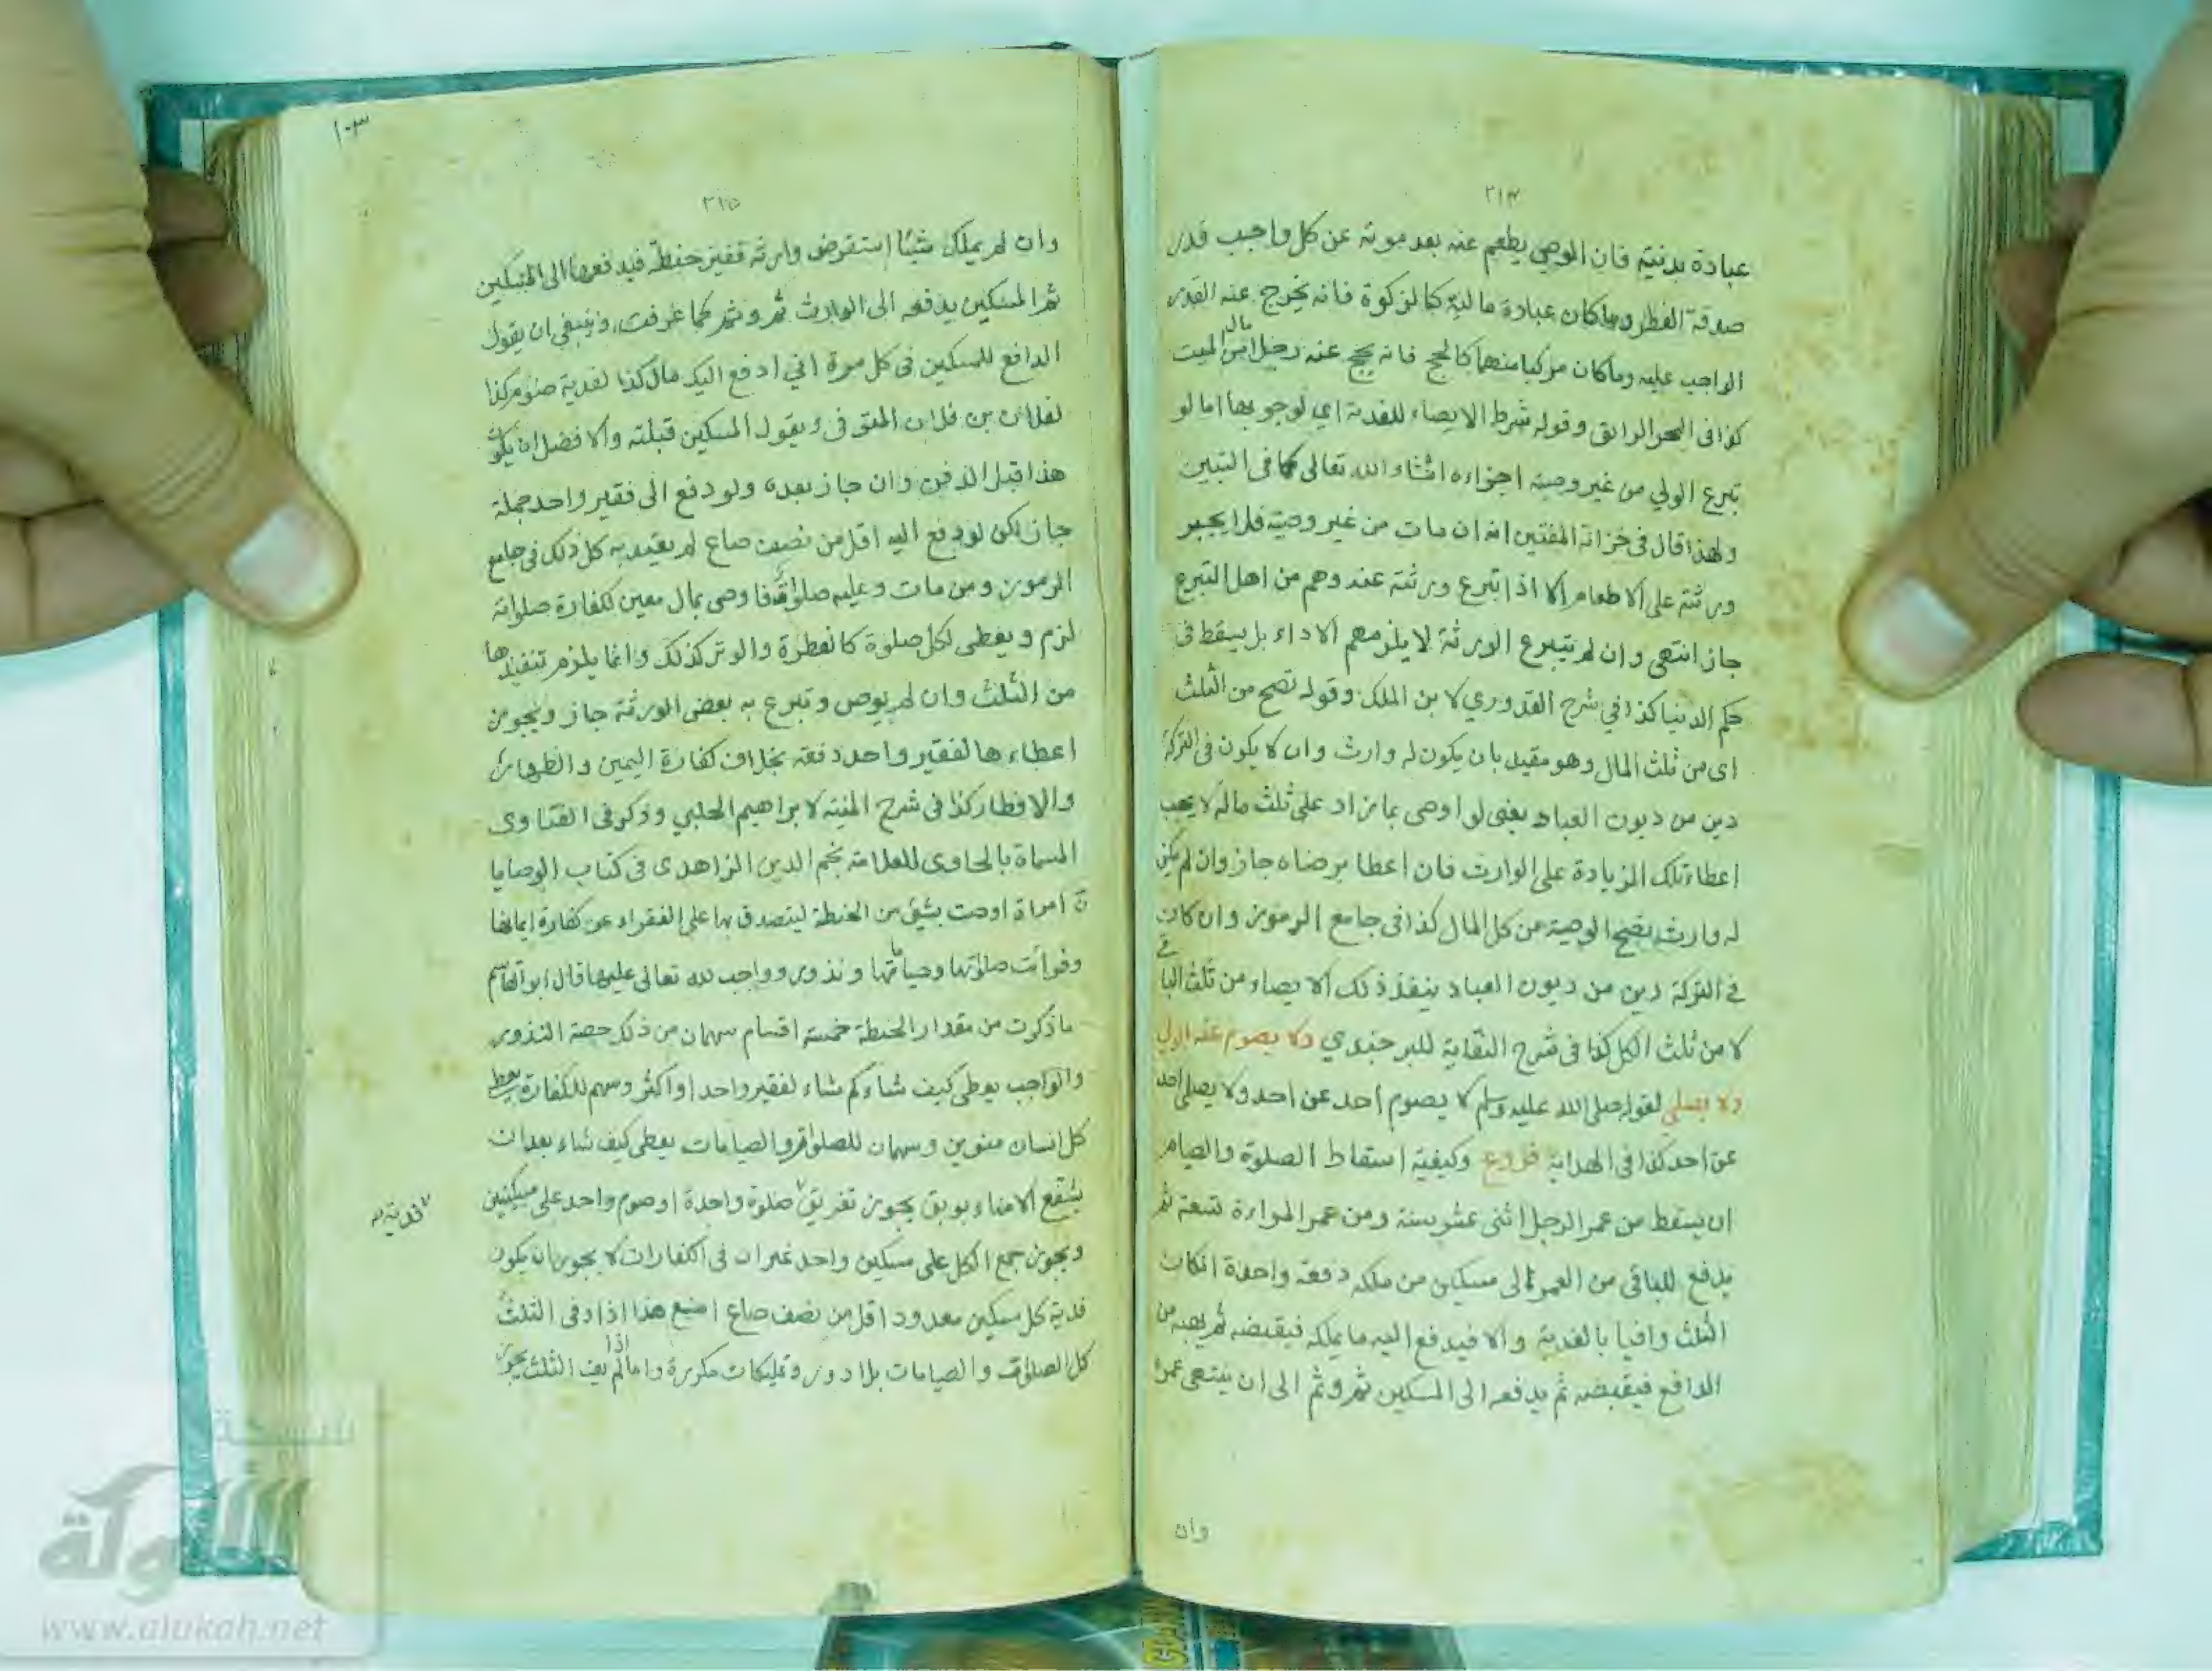 ٢١٤
عبادة بدنية فان الوصي يطعم عنه بعد موته عن كل واجب قدر
صدقة الفطر وما كان عبادة مالية كالزكوة فانه يخرج عنه القدر
الواجب عليه وما كان مركبا منهما كالحج فانه يحج عنه رجل من مال الميت
كذا في البحر الرائق وقوله شرط الايصاء للفدية اي لوجوبها اما لو
تبرع الولي من غير وصية اجزاءه انشاء الله تعالى كما في التبيين
ولهذا قال في خزانة المفتين انه ان مات من غير وصية فلا يجبر
ورثته على الاطعام الا اذا تبرع ورثته عنه وهم من اهل التبرع
جاز انتهى وان لم يتبرع الورثة لا يلزمهم الاداء بل يسقط في
حكم الدنيا كذا في شرح القدوري لابن الملك وقوله تصح من الثلث
اى من ثلث المال وهو مقيد بان يكون له وارث وان لا يكون في التركة
دين من ديون العباد يعنى لو اوصى بما زاد على ثلث ماله لا يجب
اعطاء تلك الزيادة على الوارث فان اعطا برضاه جاز وان لم يكن
له وارث يصح الوصية من كل المال كذا في جامع الرموز وان كان
في التركة دين من ديون العباد ينفذ ذلك الايصاء من ثلث الباقى
لا من ثلث الكل كذا في شرح النقاية للبرجندي ولا يصوم عنه الولي
ولا يصلي لقوله صلى الله عليه وسلم لا يصوم احد عن احد ولا يصلى احد
عن احد كذا في الهداية فروع وكيفية اسقاط الصلوة والصيام
ان يسقط من عمر الرجل اثنى عشر سنة ومن عمر المراءة تسعة ثم
يدفع للباقي من العمر الى مسكين من ملكه دفعة واحدة انكان
الثلث وافيا بالفدية والا فيدفع اليه ما يملكه فيقبضه ثم يهبه من
الدافع فيقبضه ثم يدفعه الى المسكين ثم وثم الى ان ينتهى عمره
وان
١٠٣
٢١٥
وان لم يملك شيئا استقرض وارثه قفيز حنطة فيدفعها الى المسكين
ثم المسكين يدفعه الى الوارث ثم وثم كما عرفت وينبغي ان يقول
الدافع للمسكين في كل مرة اني ادفع اليك مال كذا لفدية صوم كذا
لفلان بن فلان المتوفى ويقول المسكين قبلته والافضل ان يكون
هذا قبل الدفن وان جاز بعده ولو دفع الى فقير واحد جملة
جاز لكن لو دفع اليه اقل من نصف صاع لم يعتد به كل ذلك في جامع
الرموز ومن مات وعليه صلوات فاوصى بمال معين لكفارة صلواته
لزم ويعطى لكل صلوة كالفطرة والوتر كذلك وانما يلزم تنفيذها
من الثلث وان لم يوص وتبرع به بعض الورثة جاز ويجوز
اعطاءها لفقير واحد دفعة بخلاف كفارة اليمين والظهار
والافطار كذا في شرح المنية لابراهيم الحلبي وذكر في الفتاوى
المسماة بالحاوى للعلامة نجم الدين الزاهدى في كتاب الوصايا
امراة اوصت بشئ من الحنطة ليتصدق بها على الفقراء عن كفارة ايمانها
وفوائت صلوتها وصياماتها ونذور وواجب لله تعالى عليها قال ابو القاسم
ما ذكرت من مقدار الحنطة خمسة اقسام سهمان من ذلك حصة النذور
والواجب يعطى كيف شاء كم شاء لفقير واحد او اكثر وسهم للكفارة يعطى
كل انسان منوين وسهمان للصلوات والصيامات يعطى كيف شاء بعد ان
الامناء يجوز تفريق صلوة واحدة او صوم واحد على مسكينين
فدية
ويجوز جمع الكل على مسكين واحد غير ان في الكفارات لا يجوز ان يكون
فدية كل مسكين معدود اقل من نصف صاع اصنع هذا اذا وفى الثلث
كل الصلوات والصيامات بلا دور وتمليكات مكررة واما اذا لم يف الثلث يجوز
شبكة
الألوكة
www.alukah.net